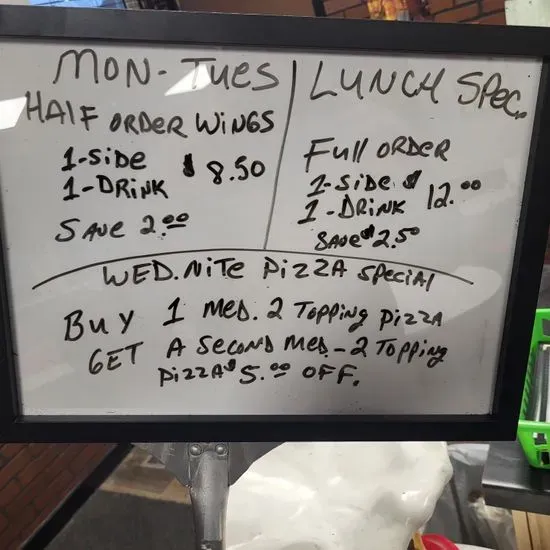 MON-TUES | LUNCH SPEC.
HALF ORDER WINGS
1-SIDE
1-DRINK
$8.50
SAVE 2.00
FULL ORDER
1-SIDE
1-DRINK
$12.00
SAVE $2.50
WED. NITE PIZZA SPECIAL
BUY 1 MED. 2 TOPPING PIZZA
GET A SECOND MED-2 TOPPING
PIZZA $5.00 OFF.